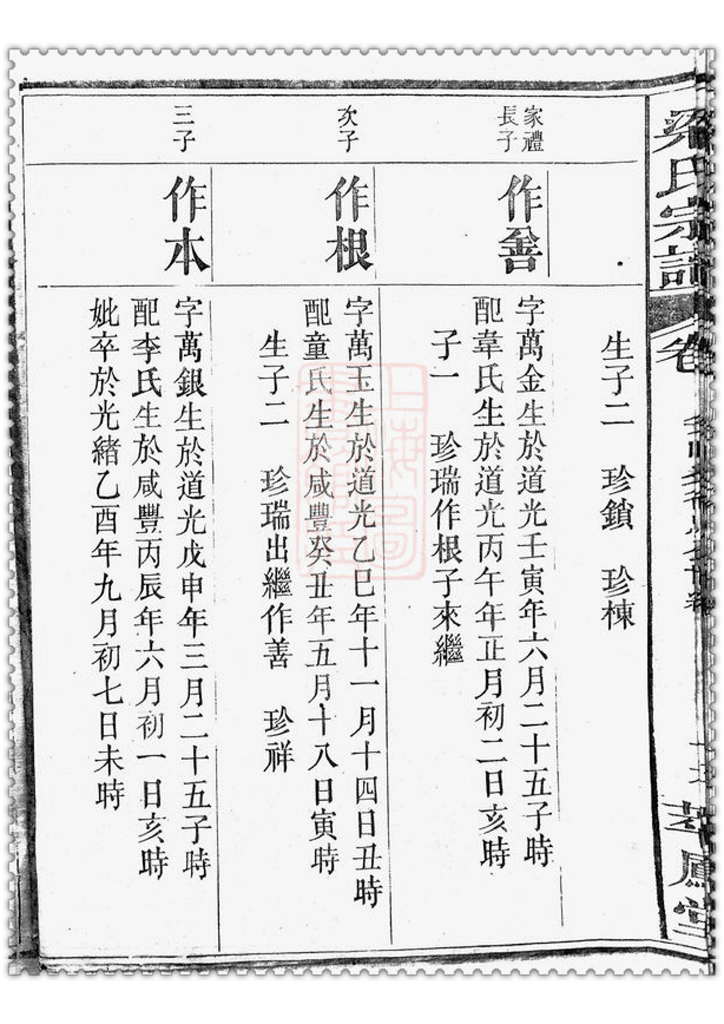 梁氏宗譜
卷
萃鳳堂
生子二 珍鎖 珍棟
家禮
長子
作善
字萬金生於道光壬寅年六月二十五子時
配韋氏生於道光丙午年正月初二日亥時
子一 珍瑞作根子來繼
次子
作根
字萬玉生於道光乙巳年十一月十四日丑時
配童氏生於咸豐癸丑年五月十八日寅時
生子二 珍瑞出繼作善 珍祥
三子
作本
字萬銀生於道光戊申年三月二十五子時
配李氏生於咸豐丙辰年六月初一日亥時
妣卒於光緒乙酉年九月初七日未時